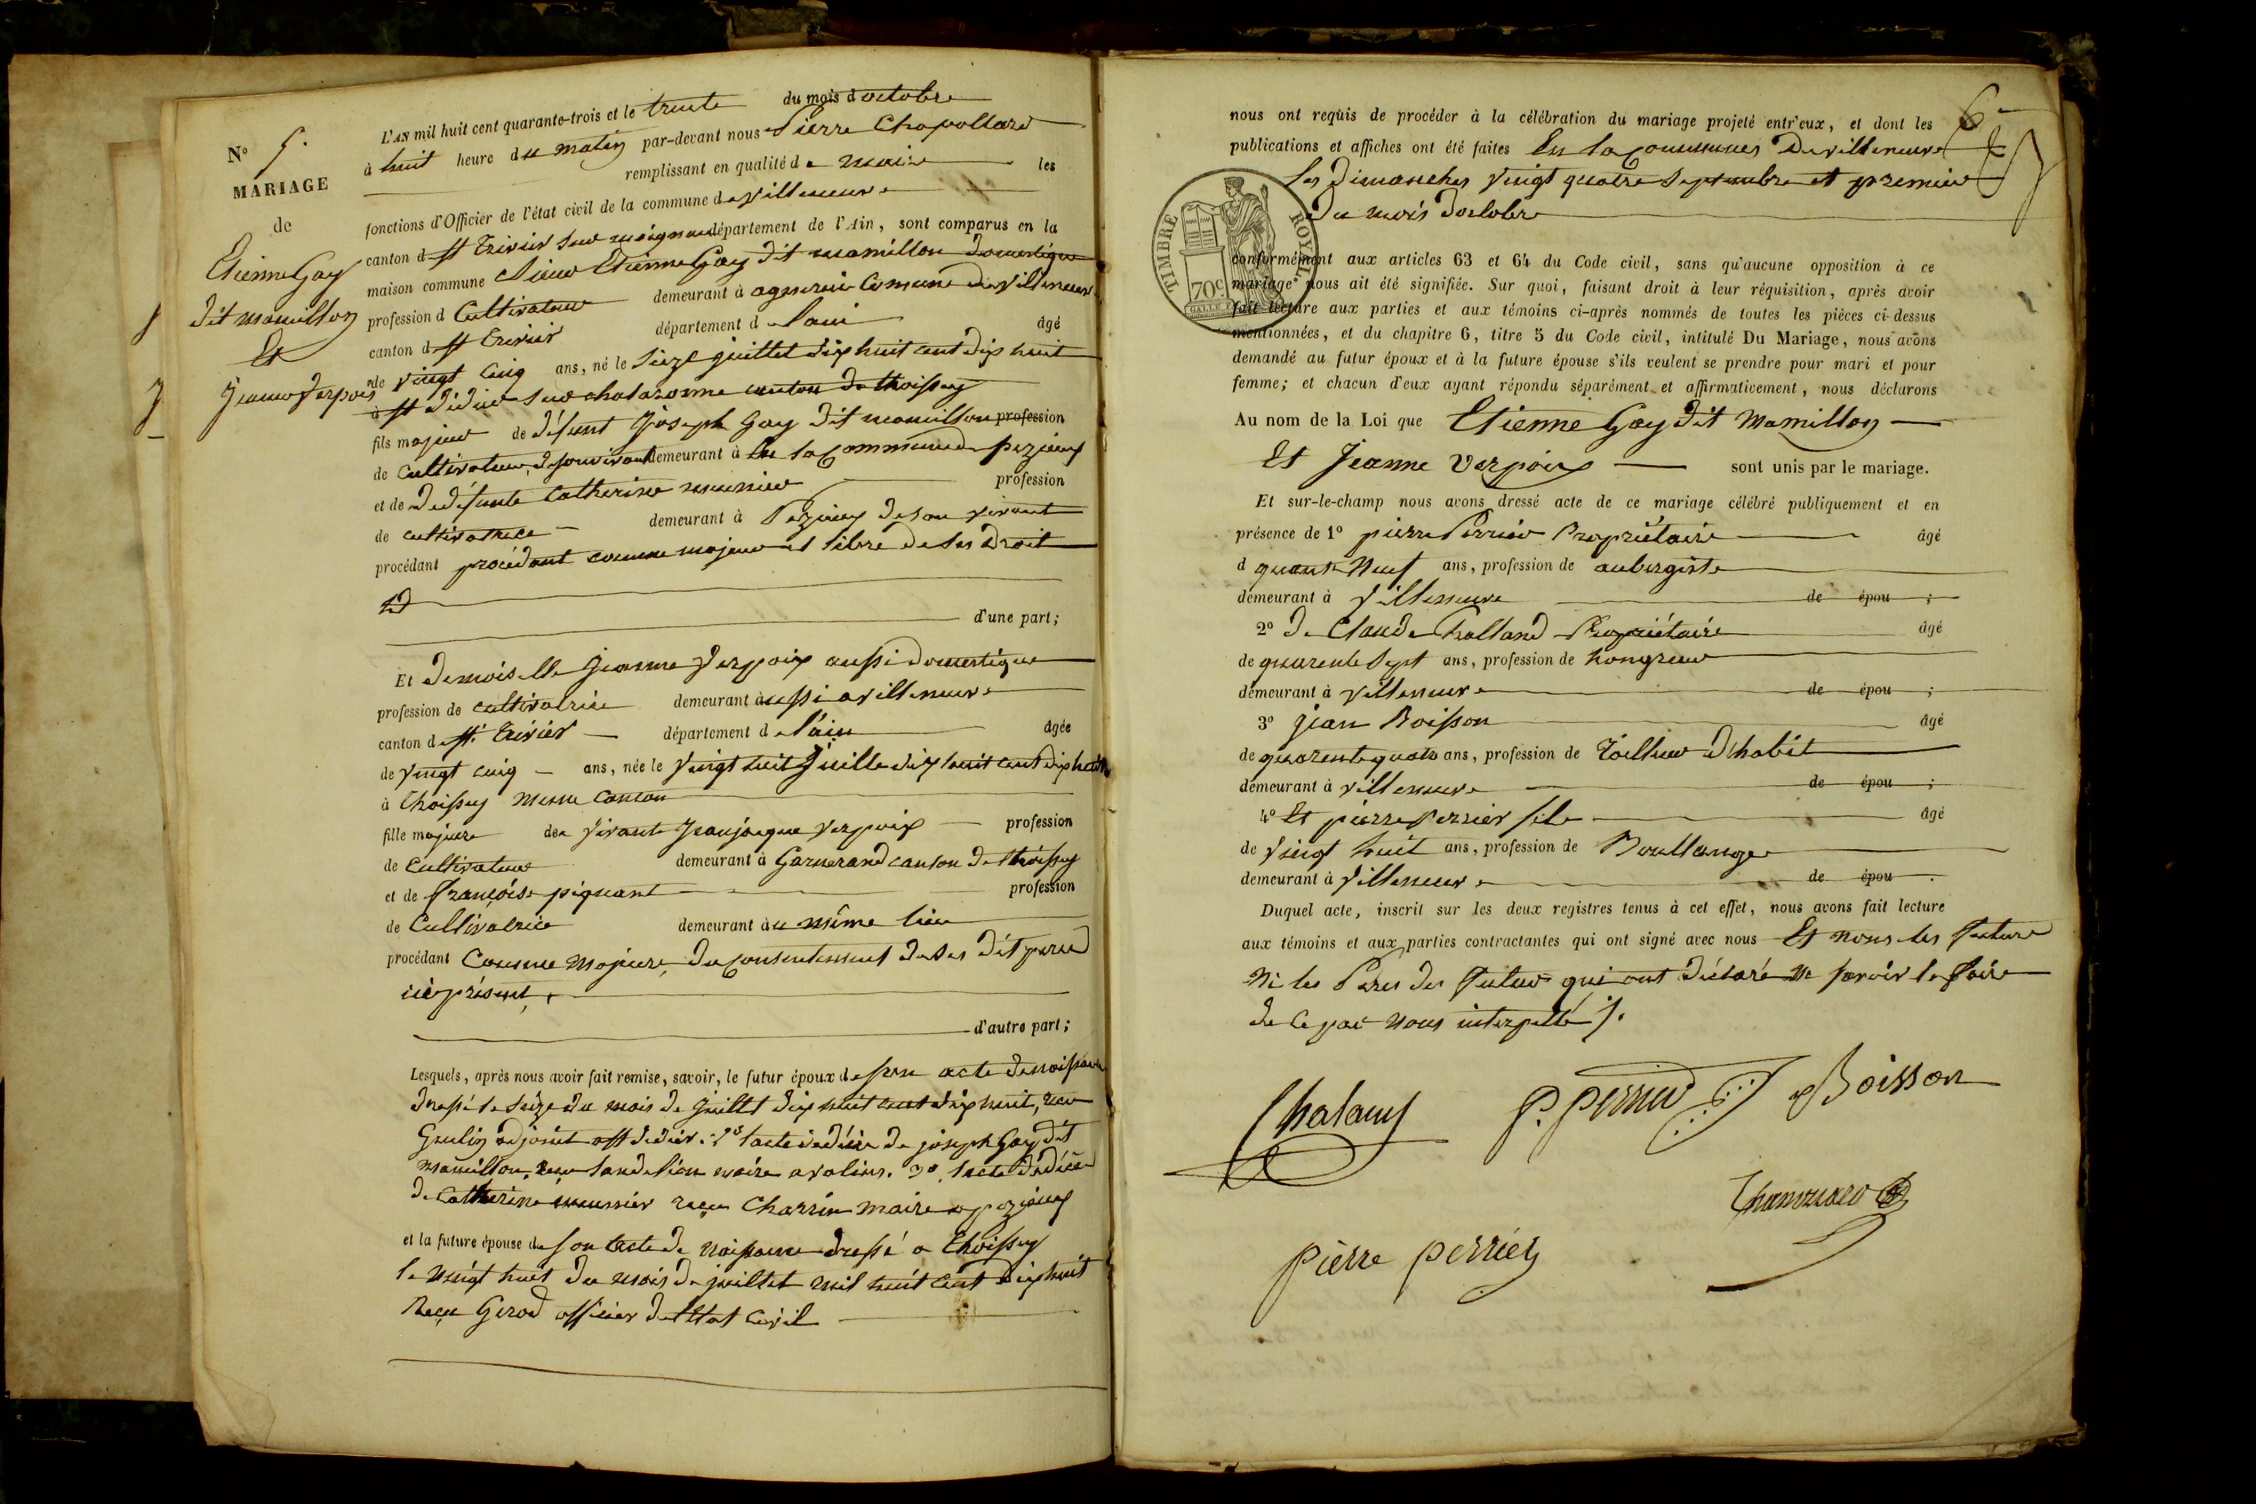 N° 5.
MARIAGE
de
Etienne Gay
dit mamillon
Et
Jeanne Verpoix
L'AN mil huit cent quarante-trois et le trente du mois d'octobre
à huit heure du matin par-devant nous Pierre Chapollard
remplissant en qualité de maire les
fonctions d'Officier de l'état civil de la commune de villeneuve
canton de st Trivier sur moignan département de l'Ain, sont comparus en la
maison commune Sieur Etienne Gay dit mamillon domestique
profession d Cultivateur demeurant à agnereins Comune de villeneuve
canton de st Trivier département de l'ain âgé
de vingt cinq ans, né le seize juillet dix huit cent dix huit
à st didier sur chalaronne canton de thoissey
fils majeur de défunt Joseph Gay dit mamillon profession
de cultivateur, de son vivant demeurant à En la Commune de pezieux
et de de défunte Catherine meunier profession
de cultivatrice demeurant à Pezieux de son vivant
procédant procédant comme majeur et libre de ses droit
d'une part;
Et demoiselle Jeanne Verpoix aussi domestique
profession de cultivatrice demeurant aussi a villeneuve
canton de st. Trivier département de l'ain âgée
de vingt cinq ans, née le vingt huit Juillet dix huit cent dix huit
à thoissey meme canton
fille majeure de vivant Jean jacque verpoix profession
de cultivateur demeurant à Garnerand canton de thoissey
et de françoise piquant profession
de Cultivatrice demeurant au même lieu
procédant Comme majeure, du consentement de ses dit pere
ici présent,
d'autre part;
Lesquels, après nous avoir fait remise, savoir, le futur époux de son acte de naissance
dressé le seize du mois de Juillet dix huit cent dix huit, reçu
adjoint a st didier. 2° l'acte de décè de joseph Gay dit
mamillon, reçu maire a valins. 3°. l'acte de décè
de Catherine meunier reçu Charrin maire a pezieux
et la future épouse de son acte de naissance dressé a thoissey
le vingt huit du mois de juillet mil huit cent dix huit
Reçu Girod officier de l'état civil
6
nous ont requis de procéder à la célébration du mariage projeté entr'eux, et dont les
publications et affiches ont été faites En la Communes de villeneuve
les dimanches vingt quatre septembre et premier
du mois d'octobre
TIMBRE ROYAL
70c
conformément aux articles 63 et 64 du Code civil, sans qu'aucune opposition à ce
mariage nous ait été signifiée. Sur quoi, faisant droit à leur réquisition, après avoir
fait lecture aux parties et aux témoins ci-après nommés de toutes les pièces ci-dessus
mentionnées, et du chapitre 6, titre 5 du Code civil, intitulé Du Mariage, nous avons
demandé au futur époux et à la future épouse s'ils veulent se prendre pour mari et pour
femme; et chacun d'eux ayant répondu séparément et affirmativement, nous déclarons
Au nom de la Loi que Etienne Gay dit Mamillon
Et Jeanne Verpoix sont unis par le mariage.
Et sur-le-champ nous avons dressé acte de ce mariage célébré publiquement et en
présence de 1° pierre Perrier Propriétaire âgé
d Neuf ans, profession de aubergiste
demeurant à Villeneuve de épou ;
2° de Claude Propriétaire âgé
de quarente sept ans, profession de hongreur
demeurant à villeneuve de épou ;
3° Jean Boisson âgé
de quarente quatre ans, profession de Tailleur d'habit
demeurant à villeneuve de épou ;
4° Et pierre perrier fils âgé
de vingt huit ans, profession de Boullanger
demeurant à Villeneuve de épou .
Duquel acte, inscrit sur les deux registres tenus à cet effet, nous avons fait lecture
aux témoins et aux parties contractantes qui ont signé avec nous Et nous les future
Ni les Peres des futur qui ont déclaré ne savoir le faire
de ce par nous interpellé ./.
P. perrier Boisson
pierre perrier